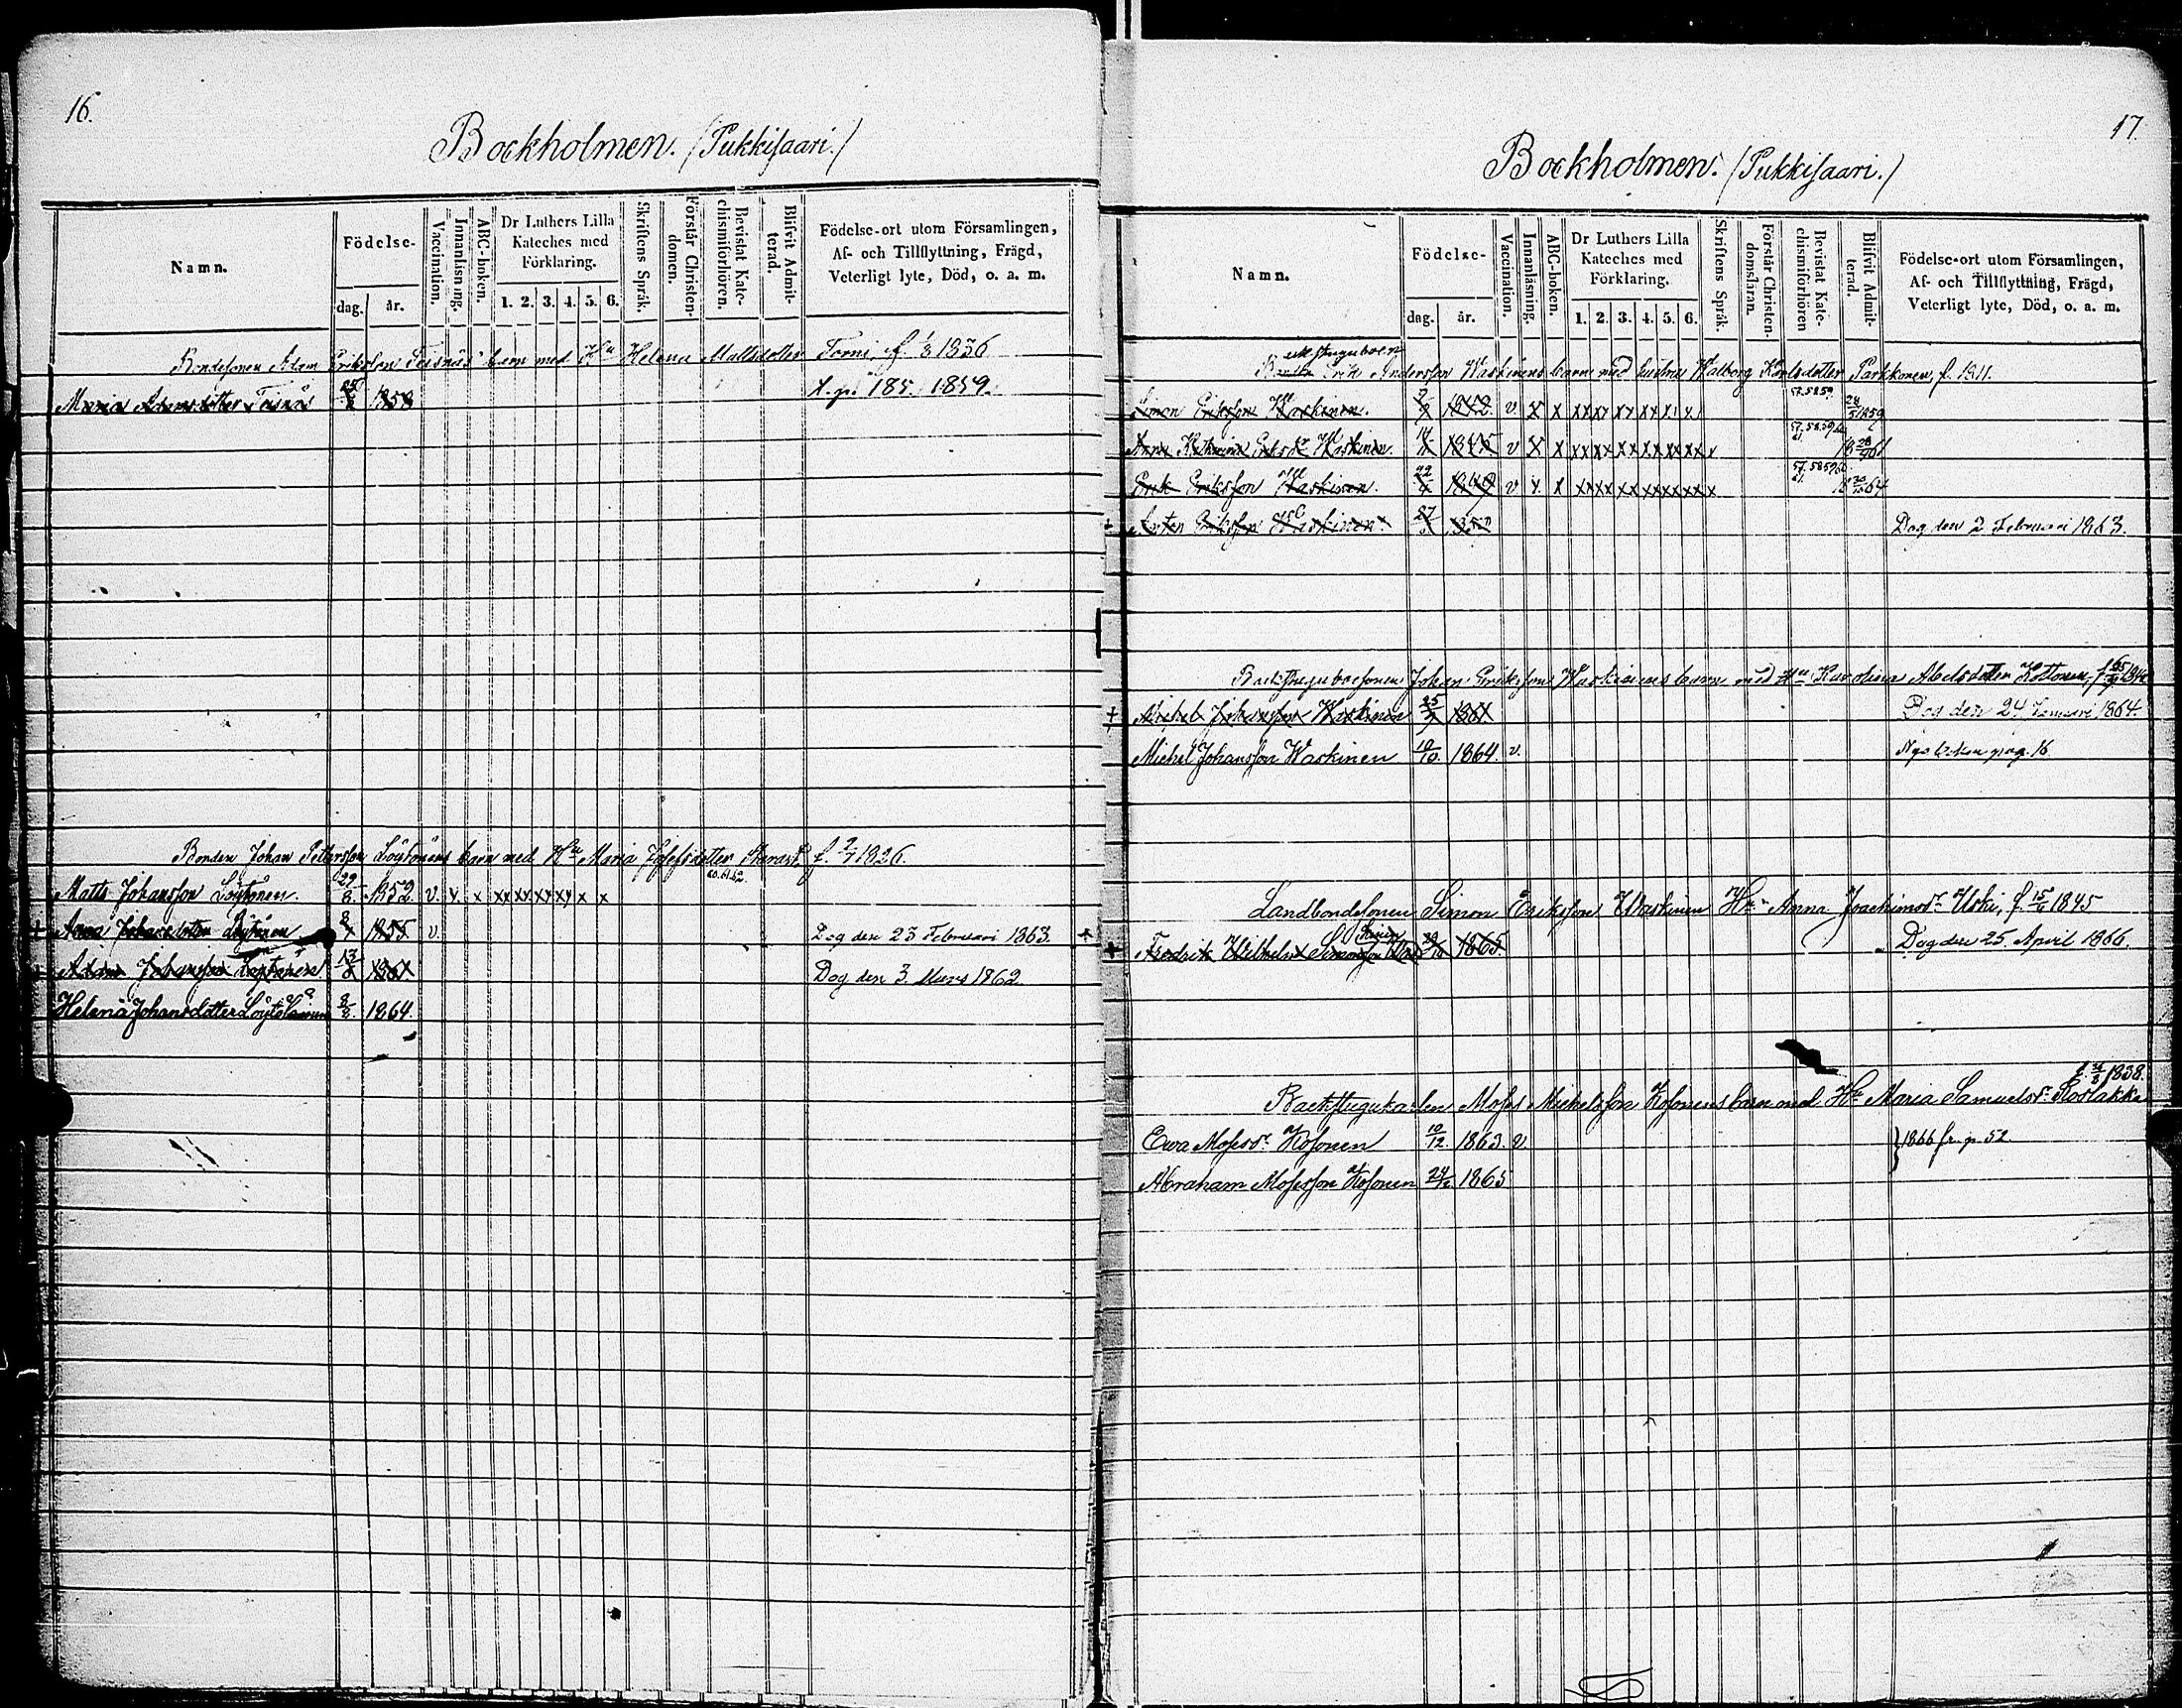 16.
Bockholmen. (Pukkisaari.)
Namn.
Födelse-
dag. år.
Vaccination.
Innanläsning.
ABC-boken.
Dr Luthers Lilla Kateches med Förklaring.
1. 2. 3. 4. 5. 6.
Skriftens Språk.
Förstår Christendomen.
Bevistat Katechismiförhören.
Blifvit Admitterad.
Födelse-ort utom Församlingen,
Af- och Tillflyttning, Frägd,
Veterligt lyte, Död, o. a. m.
Bondesonen Adam Eriksson barn med Hu Helena Mattsdotter Torni, f. 1836
Maria Adamsdotter 1858 t. p. 185. 1859.
Bonden Johan Pettersson Löytönens barn med Hu Maria Josefsdotter f. 2/7 1826.
Matts Johansson Löytönen. 29/8. 1852. v. x x xx xx xx xx x x 60.61.62.
+ Anna Johansdotter Löytönen 1855 v. Dog den 23 Februari 1863. +
+ Adam Johansson Löytönen 1861. Dog den 3. Mars 1862.
Helena Johansdotter 8/8. 1864.
17.
Bockholmen. (Pukkisaari.)
Namn.
Födelse-
dag. år.
Vaccination.
Innanläsning.
ABC-boken.
Dr Luthers Lilla Kateches med Förklaring.
1. 2. 3. 4. 5. 6.
Skriftens Språk.
Förstår Christendomsläran.
Bevistat Katechismiförhören
Blifvit Admitterad.
Födelse-ort utom Församlingen,
Af- och Tillflyttning, Frägd,
Veterligt lyte, Död, o. a. m.
Erik Andersson Waskinens barn med hustru Walborg Karlsdotter Parkkonen, f. 1811.
Simon Eriksson Waskinen. 1842. v. x x xx xx xx xx x x 57.58.59. 1859
Anna Katharina Eriksdr Waskinen. 1845 v x x xx xx xx xx xx xx x 61
Erik Eriksson Waskinen. 1849 v x. x xx xx xx xx xx xx x 64
+ Eriksson Waskinen. 27 Dog den 2 Februari 1863.
Backstugubosonen Johan Erikssons Waskinens barn med Hu Karolina Abelsdotter
+ Michel Johansson Waskinen 25 1861 Dog den 24 Januari 1864.
Michel Johansson Waskinen 10/10. 1864. v. Nya boken pag. 16
Landbondesonen Simon Eriksson Waskinen Hu Anna Joachimsdr Uski, f. 1845
+ Fredrik Wilhelm Simonsson Waskinen 1865. Dog den 25. April 1866.
f. 1838.
Backstugukarlen Moses Michelsson Kosonens barn med Hu Maria Samuelsdr
Ewa Mosesdr Kosonen 10/12. 1863. v. } 1866 fr. p. 52
Abraham Mosesson Kosonen 24/12 1865